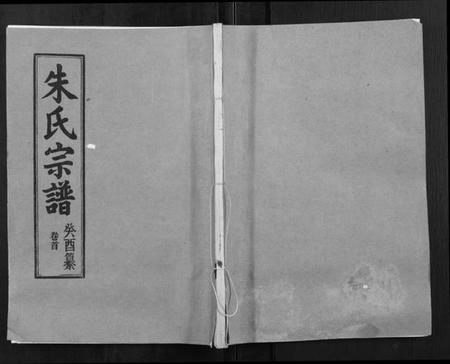 朱氏宗譜
癸酉纂
卷首